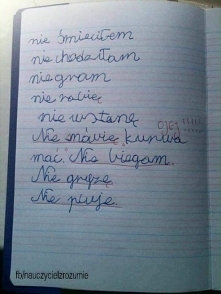 nie śmieciłem
nie chodziłam
nie gram
nie robię
nie wstanę
ojej!!!!!
Nie mówię kurwa
mać. Nie biegam.
Nie gryzę
Nie pluje.
fb/nauczycielzrozumie